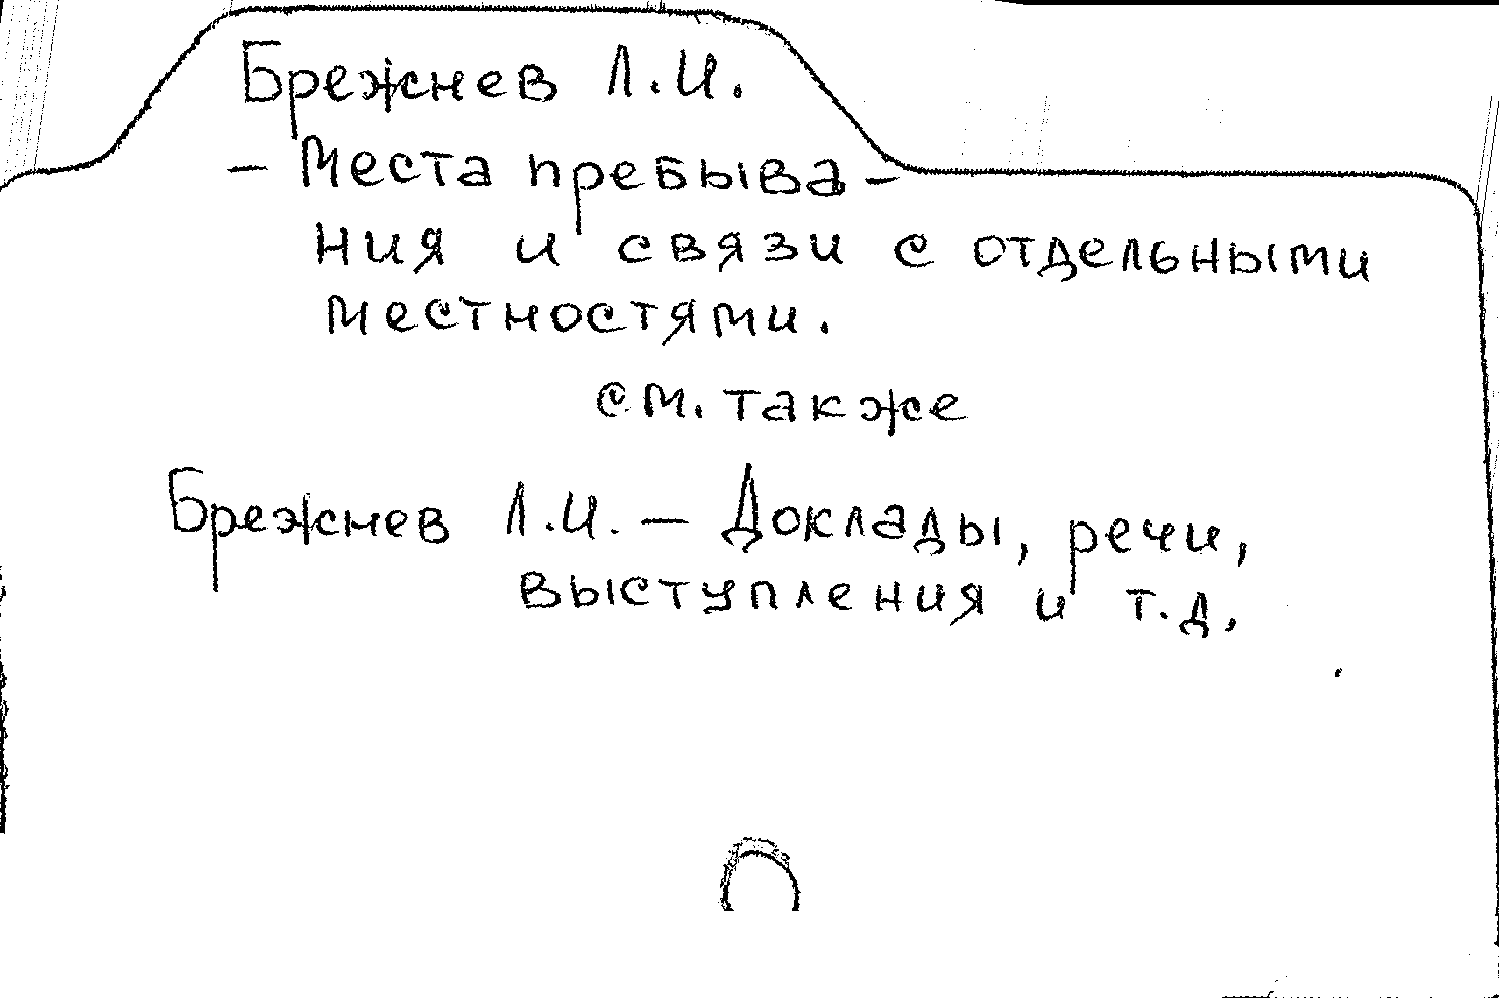 Брежнев Л.И.
– Места пребыва-
ния и связи с отдельными
местностями.
см. также
Брежнев Л.И. – Доклады, речи,
выступления и т.д.